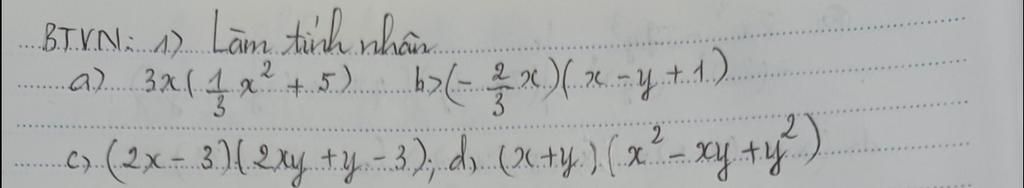 BTVN: 1) Làm tính nhân
a) 3x(1/3 x² + 5) b) (- 2/3 x)(x - y + 1)
c) (2x - 3)(2xy + y - 3); d) (x + y)(x² - xy + y²)